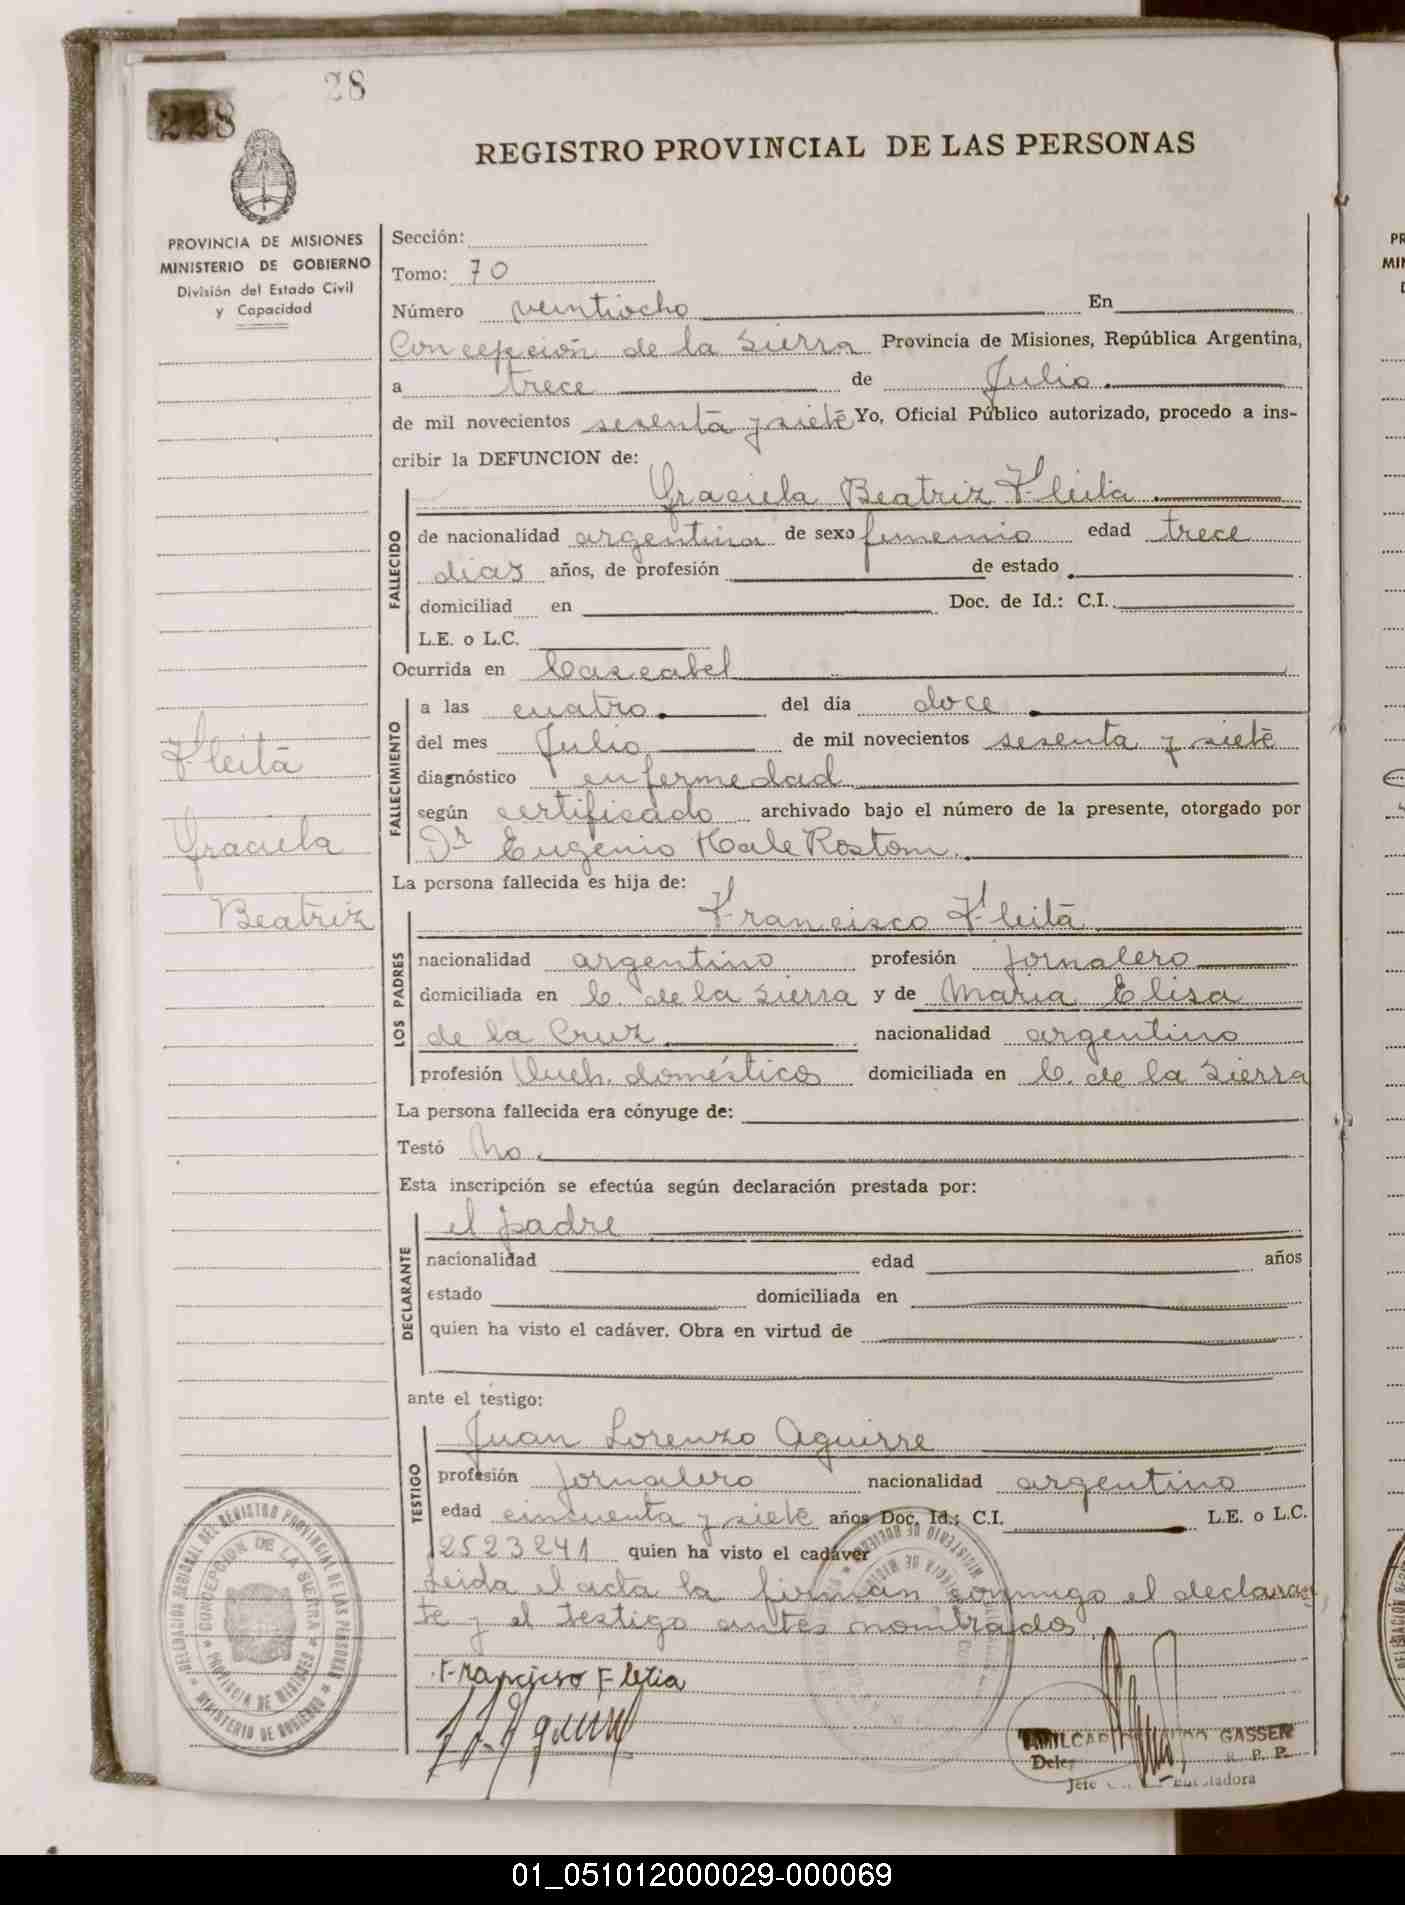 28
228
REGISTRO PROVINCIAL DE LAS PERSONAS
PROVINCIA DE MISIONES
MINISTERIO DE GOBIERNO
División del Estado Civil
y Capacidad
Sección:
Tomo: 70
Número veintiocho En
Concepción de la Sierra Provincia de Misiones, República Argentina,
a trece de Julio.
de mil novecientos sesenta y siete Yo, Oficial Público autorizado, procedo a ins-
cribir la DEFUNCION de:
FALLECIDO
Graciela Beatriz Fleita
de nacionalidad argentina de sexo femenino edad trece
dias años, de profesión de estado
domiciliad en Doc. de Id.: C.I.
L.E. o L.C.
Ocurrida en Cascabel
FALLECIMIENTO
a las cuatro. del día doce
del mes Julio de mil novecientos sesenta y siete
diagnóstico enfermedad
según certificado archivado bajo el número de la presente, otorgado por
Dr Eugenio Kale Rostom.
Fleita
Graciela
Beatriz
La persona fallecida es hija de:
LOS PADRES
Francisco Fleita
nacionalidad argentino profesión jornalero
domiciliada en C. de la Sierra y de Maria Elisa
de la Cruz nacionalidad argentino
profesión Queh. domésticos domiciliada en C. de la Sierra
La persona fallecida era cónyuge de:
Testó No.
Esta inscripción se efectúa según declaración prestada por:
DECLARANTE
el padre
nacionalidad edad años
estado domiciliada en
quien ha visto el cadáver. Obra en virtud de
ante el testigo:
TESTIGO
Juan Lorenzo Aguirre
profesión jornalero nacionalidad argentino
edad cincuenta y siete años Doc. Id.: C.I. L.E. o L.C.
2523241 quien ha visto el cadáver
Leida el acta la firman conmigo el declaran
te y el testigo antes nombrados.
Francisco Fletia
DELEGACION REGIONAL DEL REGISTRO PROVINCIAL DE LAS PERSONAS
MINISTERIO DE GOBIERNO
CONCEPCION DE LA SIERRA
PROVINCIA DE MISIONES
GASSER
R. P. P.
Jefe
01_051012000029-000069